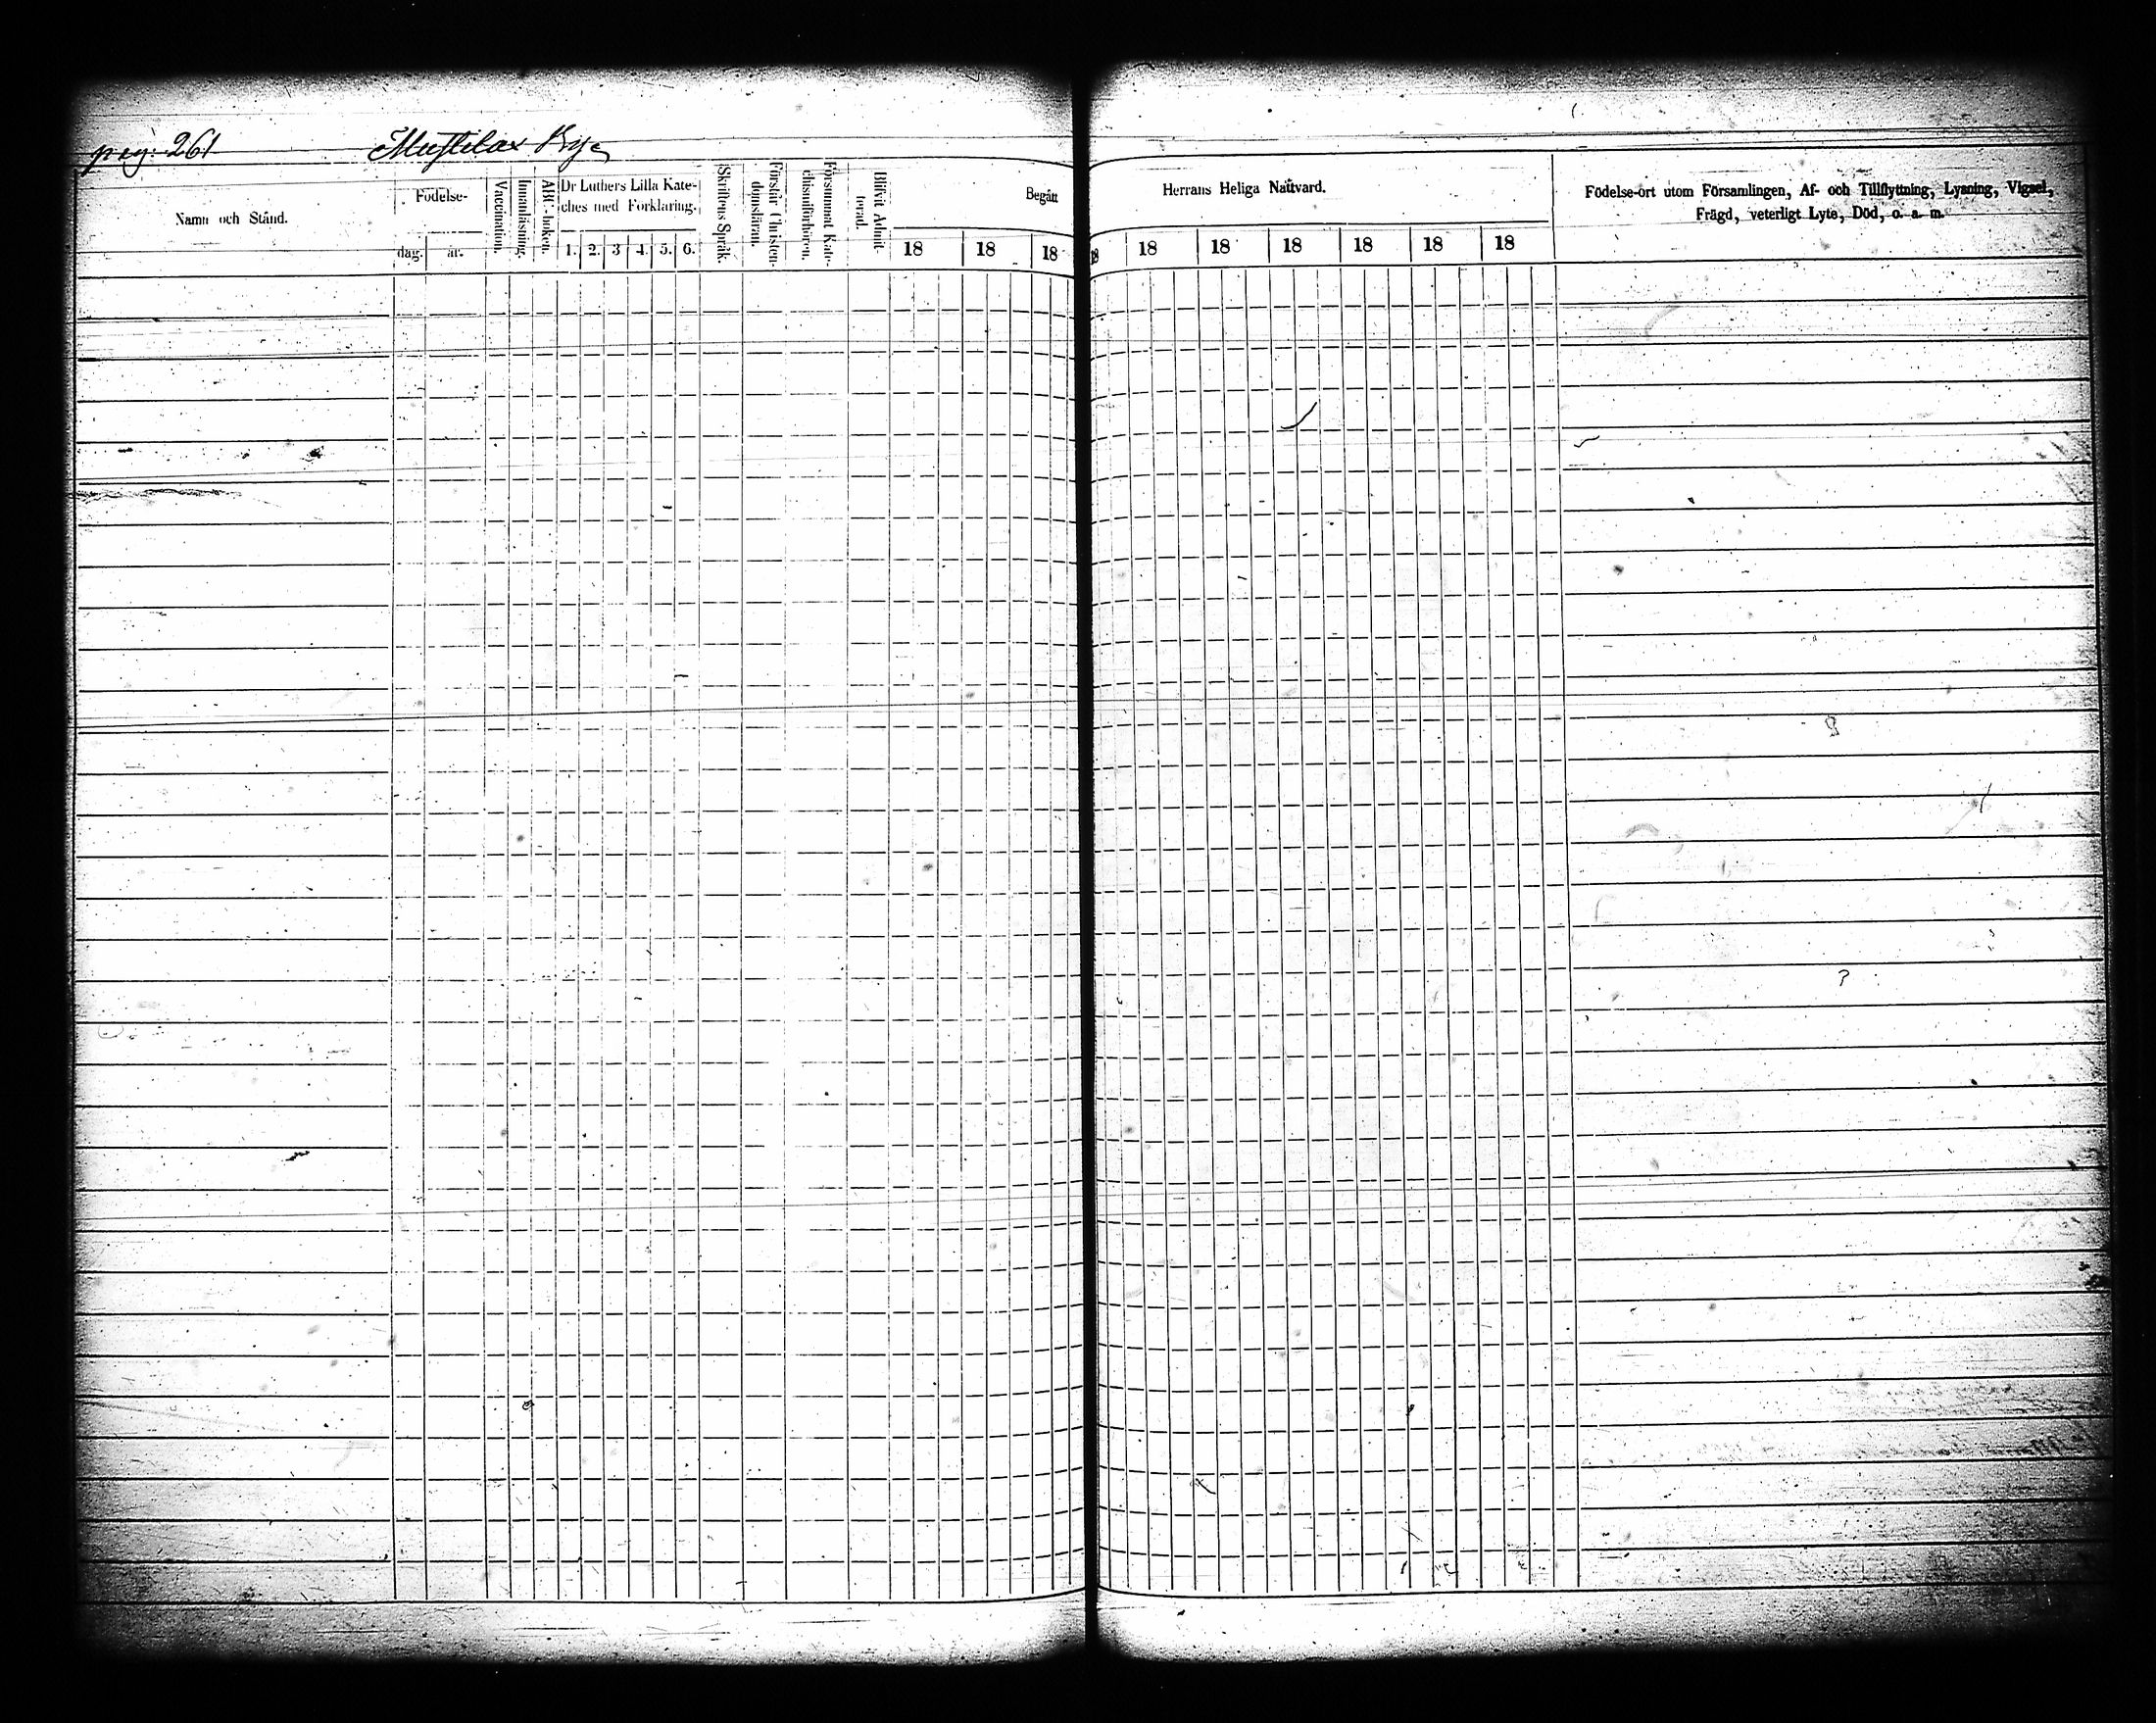 pag: 261 Mustilax By
Namn och Stånd.
Födelse-
dag. år.
Vaccination.
Innanläsning.
ABC-boken.
Dr Luthers Lilla Kate-
ches med Förklaring.
1. 2. 3 4. 5. 6.
Skriftens Språk.
Förstår Christen-
domsläran.
Försummat Kate-
chismiförhören.
Blifvit Admit-
terad.
Begått
18 18 18
Herrans Heliga Nattvard.
18 18 18 18 18 18 18
Födelse-ort utom Församlingen, Af- och Tillflyttning, Lysning, Vigsel,
Frägd, veterligt Lyte, Död, o. s. m.